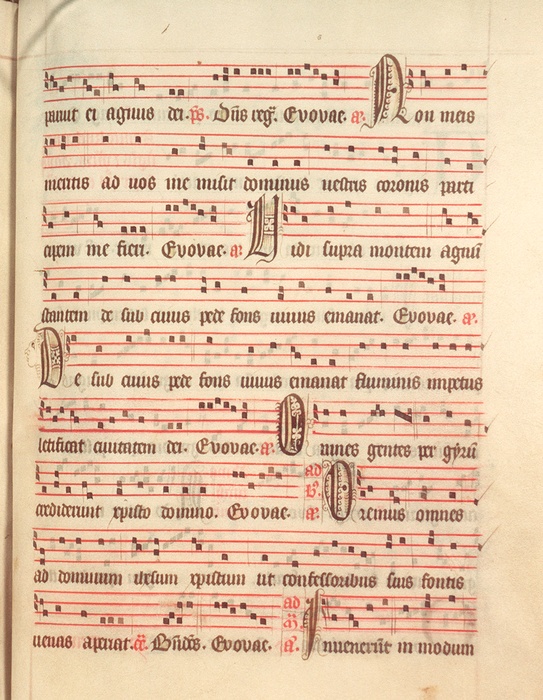 paruit ei agnus dei. ps. Dñs regͭ. Evovae. a. Non meis
meritis ad vos me misit dominus vestris coronis parti
cipem me fieri. Evovae. a. Vidi supra montem agnū
stantem de sub cuius pede fons vivus emanat. Evovae. a.
De sub cuius pede fons vivus emanat fluminis impetus
letificat civitatem dei. Evovae. a. Omnes gentes per gyrū
ad
crediderunt xpisto domino. Evovae. a. Oremus omnes
ad dominum ihesum xpistum ut confessoribus suis fontis
ad
venas aperiat. Bñdcͭs. Evovae. a. Invenerūt in modum